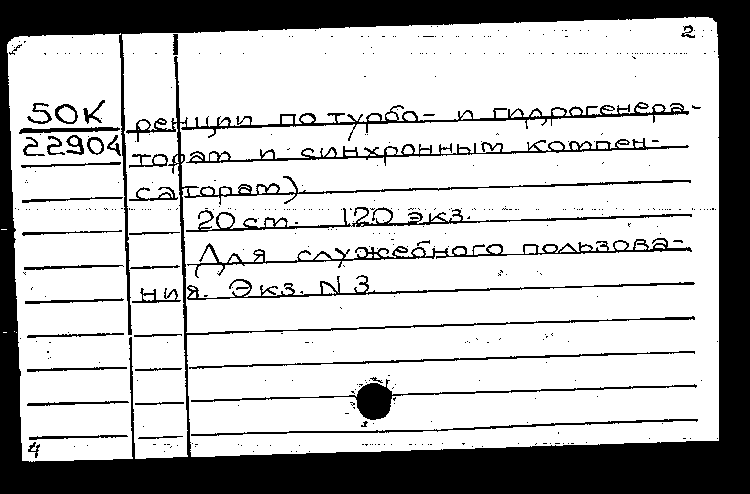 2
50К
22904
ренции по турбо- и гидрогенера-
торам и синхронным компен-
саторам).
20 см. 120 экз.
Для служебного пользова-
ния. Экз. N 3
4